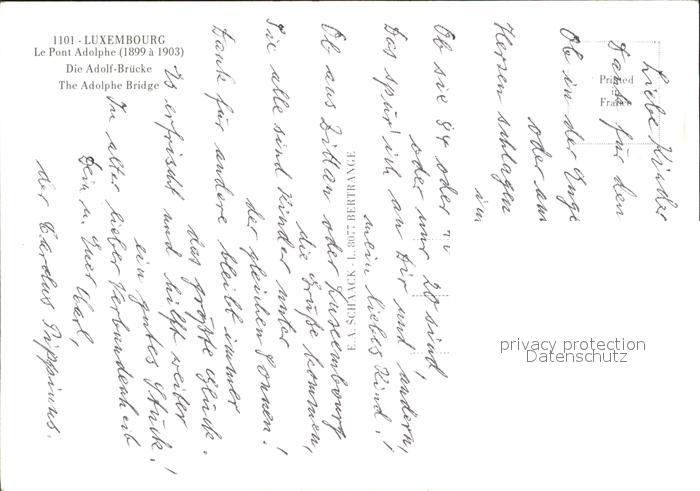 1101 - LUXEMBOURG
Le Pont Adolphe (1899 à 1903)
Die Adolf-Brücke
The Adolphe Bridge
Printed
in
France
E. A. SCHAACK - L-8077 BERTRANGE
privacy protection
Datenschutz
Liebe Kinder
Danke für den
Ob in der Enge
oder am
Herzen schlagen
im
Ob sie 84 oder
oder nur 20 sind!
Das spür' ich an Dir und andern,
mein liebes Kind!
Ob aus Zittau oder Luxembourg
die Grüße kommen,
Sie alle sind Kinder unter
der gleichen Sonnen!
Dank für andere bleibt immer
das größte Glück.
Es erfrischt und hilft weiter
ein gutes Stück!
In alter lieber Verbundenheit
Dein u. Euer Karl,
der Carolus Pippinus.